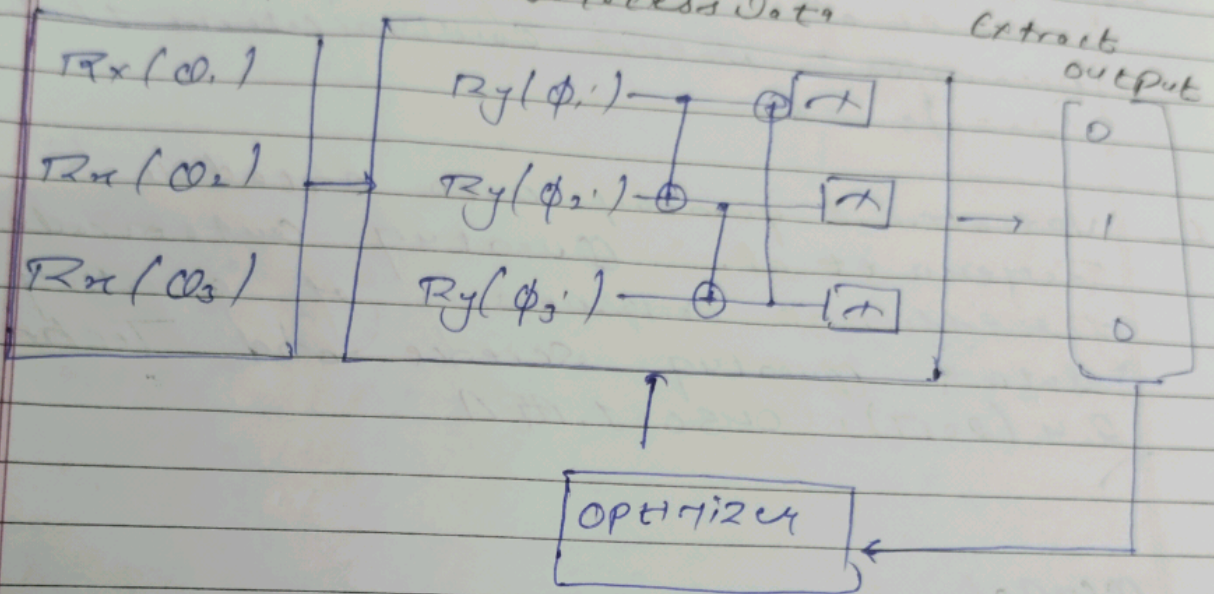 Data
Extract
output
Rx(ω₁)
Rx(ω₂)
Rx(ω₃)
Ry(ϕ₁)
Ry(ϕ₂)
Ry(ϕ₃)
0
1
0
OPTIMIZER